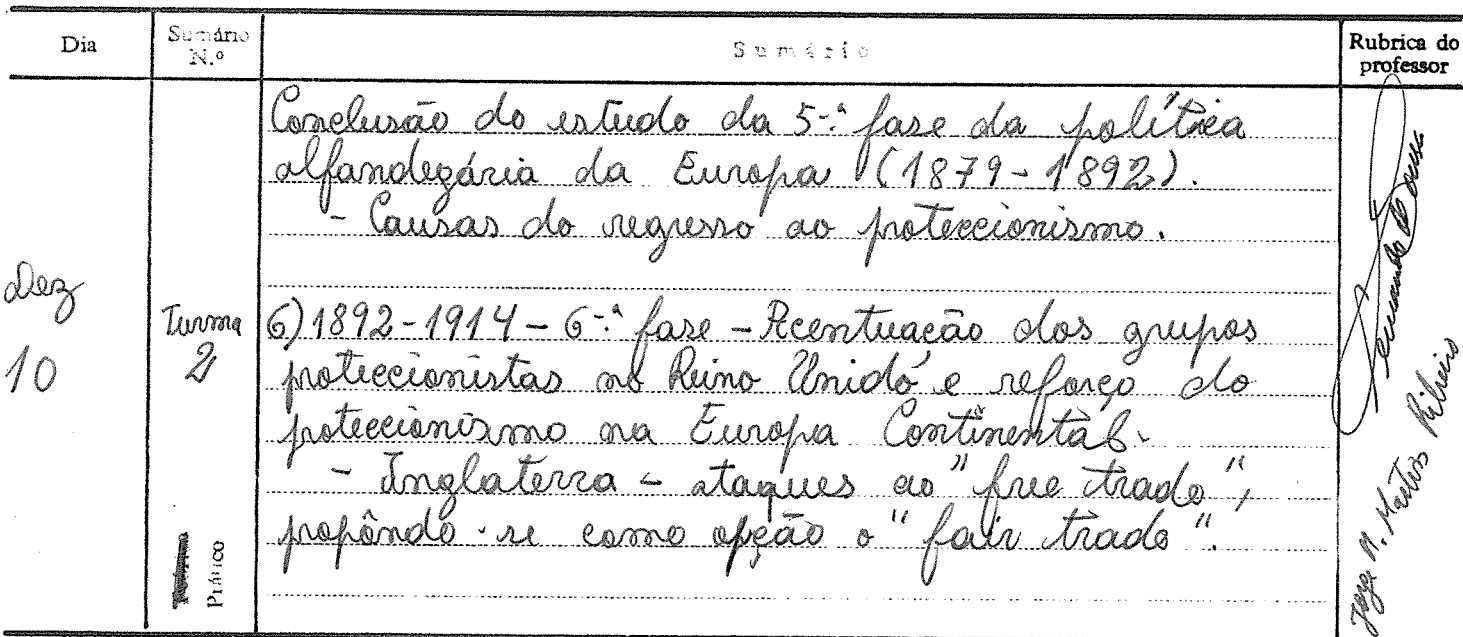 Dia
Sumário
N.º
Sumário
Rubrica do
professor
Conclusão do estudo da 5.ª fase da política
alfandegária da Europa (1879-1892).
- Causas do regresso ao proteccionismo.
Dez
10
Turma
2
Prático
6) 1892-1914 - 6.ª fase - Acentuação dos grupos
proteccionistas no Reino Unido e reforço do
poteccionismo na Europa Continental.
- Inglaterra - ataques ao "free trade",
propôndo-se como opção o "fair trade".
Fernando de Sousa
Jorge M. Martins Ribeiro